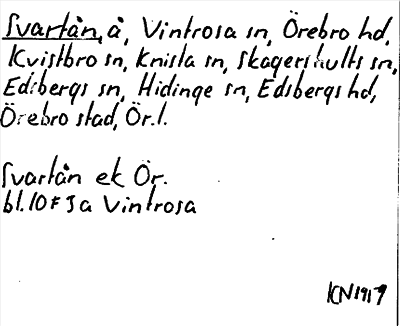 Svartån, å, Vintrosa sn, Örebro hd,
Kvistbro sn, Knista sn, Skagershults sn,
Edsbergs sn, Hidinge sn, Edsbergs hd,
Örebro stad, Ör.l.
Svartån ek Ör.
bl. 10F3a Vintrosa
KN1917